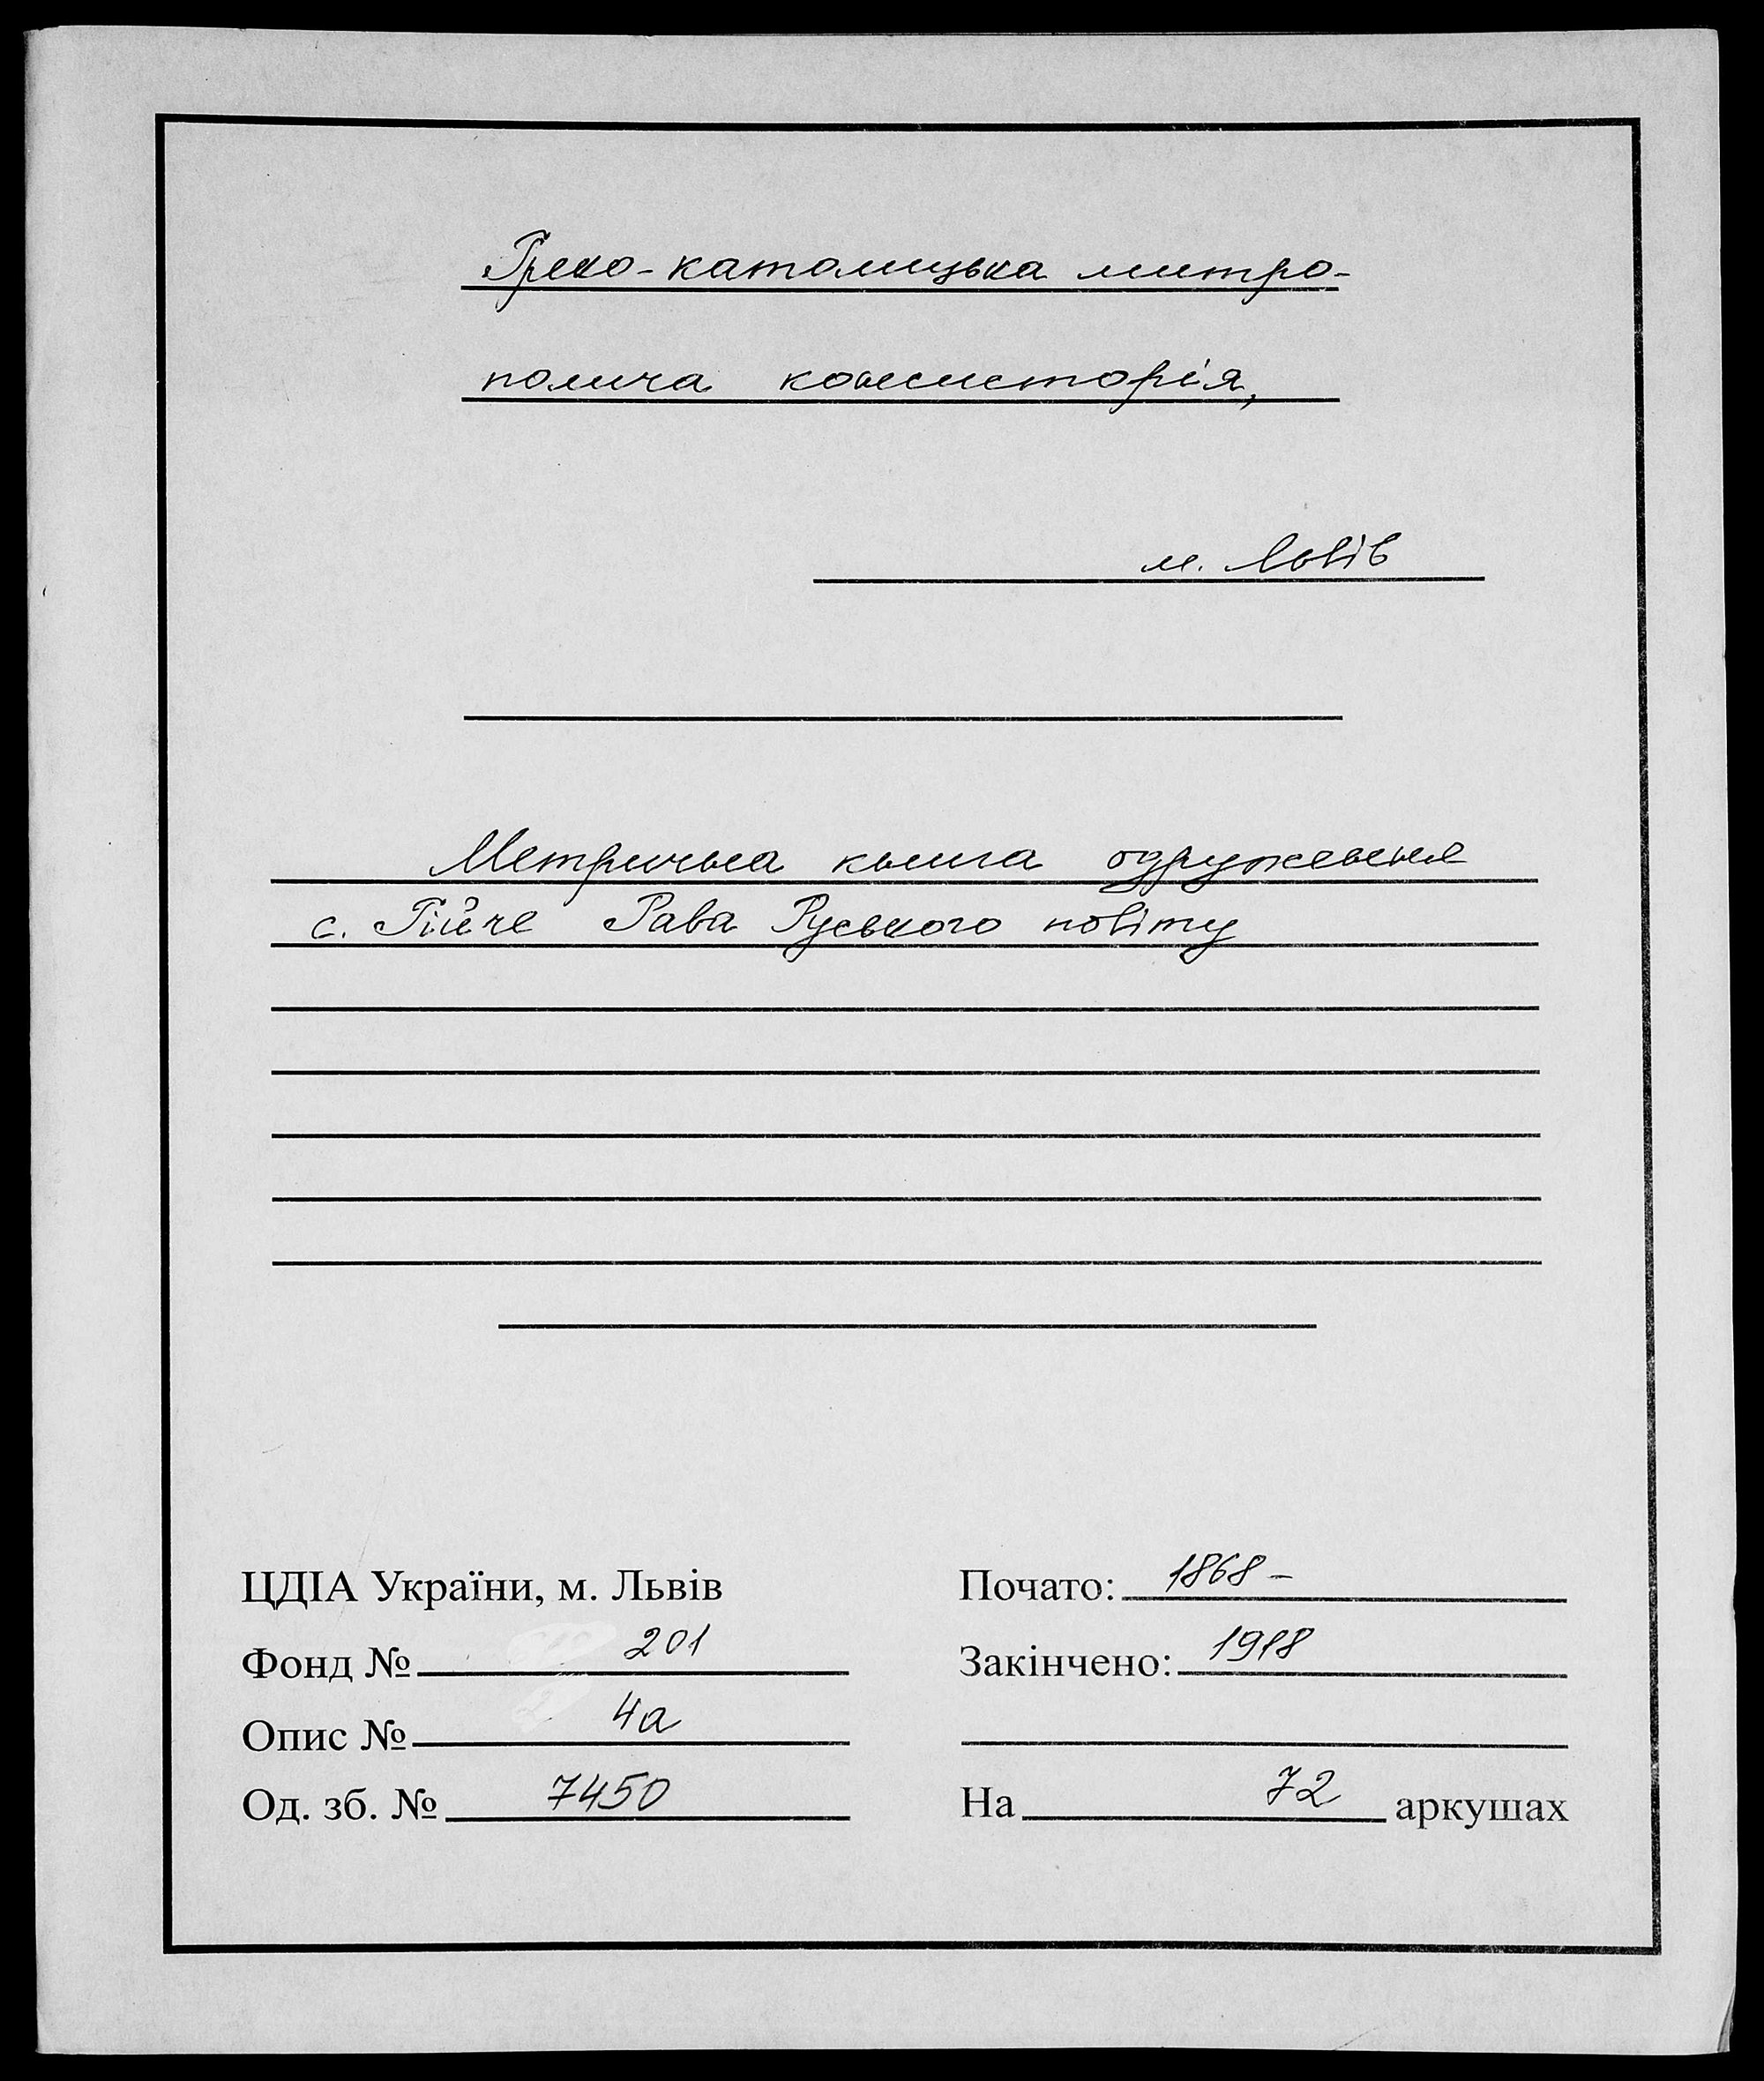 Греко-католицька митро-
полича консисторія,
м. Львів
Метрична книга одруження
с. Гійче Рава Руського повіту
ЦДІА України, м. Львів
Фонд № 201
Опис № 4а
Од. зб. № 7450
Почато: 1868 -
Закінчено: 1918
На 72 аркушах